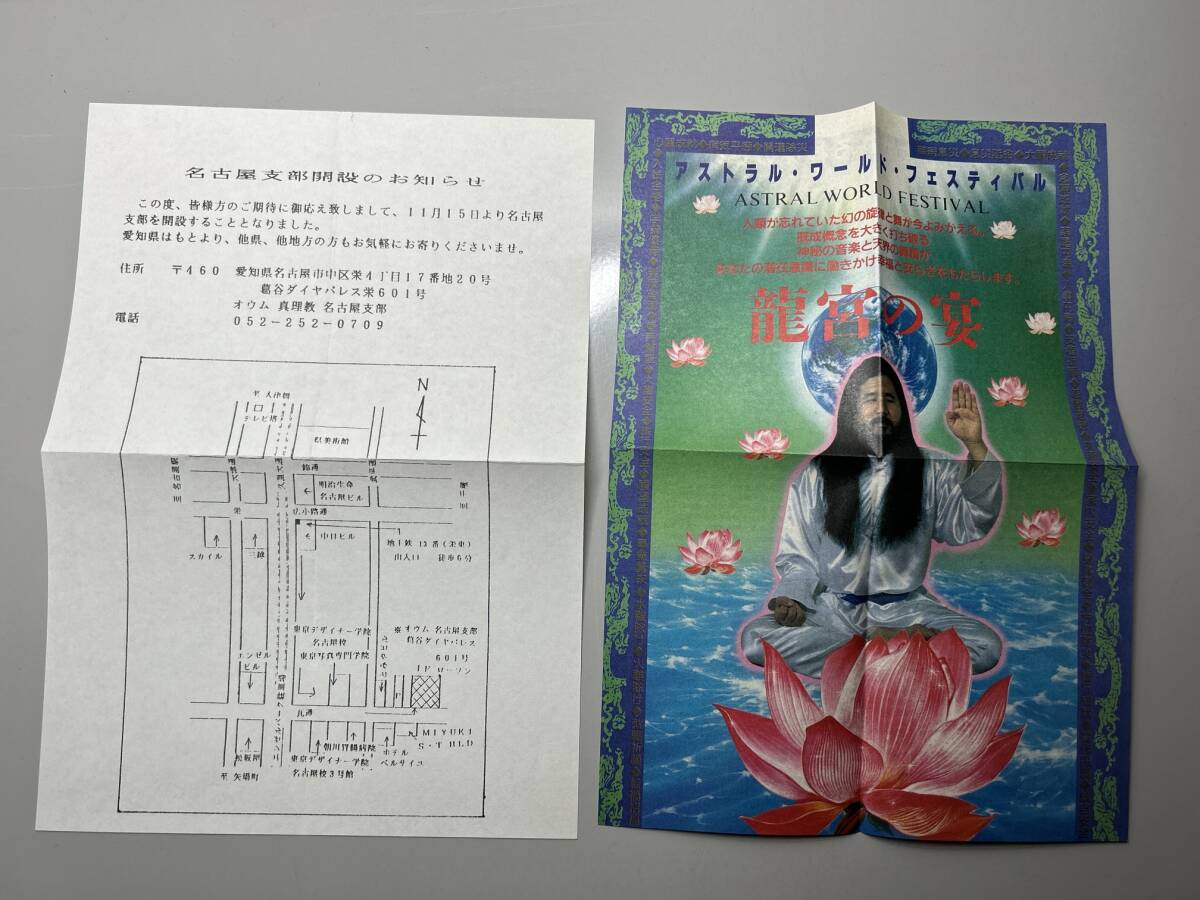 名古屋支部開設のお知らせ
この度、皆様方のご期待に御応え致しまして、11月15日より名古屋
支部を開設することとなりました。
愛知県はもとより、他県、他地方の方もお気軽にお寄りくださいませ。
住所 〒460 愛知県名古屋市中区栄4丁目17番地20号
葛谷ダイヤパレス栄601号
オウム 真理教 名古屋支部
電話 052-252-0709
N
テレビ塔
県美術館
錦通
明治生命
名古屋ビル
広小路通
栄
中日ビル
地下鉄 13番(栄東)
出入口 徒歩6分
スカイル
三越
東京デザイナー学院
名古屋校
東京写真専門学院
※ オウム 名古屋支部
葛谷ダイヤパレス
601号
エンゼル
ビル
MIYUKI
ホテル
松坂屋
東京デザイナー学院
名古屋校3号館
至 矢場町
アストラル・ワールド・フェスティバル
ASTRAL WORLD FESTIVAL
人類が忘れていた幻の旋律と舞が今よみがえる。
既成概念を大きく打ち破る
神秘の音楽と天界の舞踊が
あなたの潜在意識に働きかけ幸福と安らぎをもたらします。
龍宮の宴